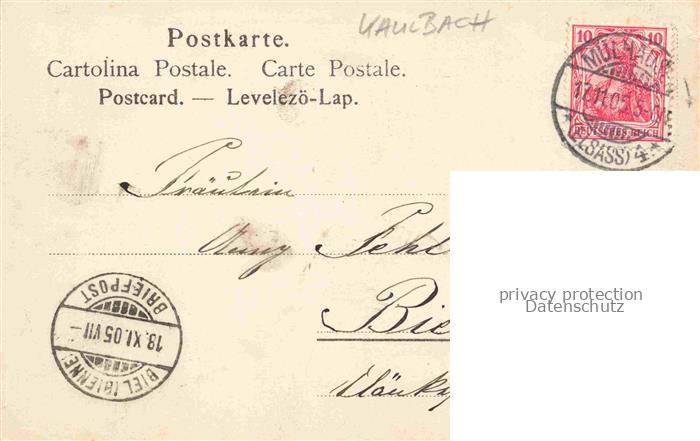 KAULBACH
Postkarte.
Cartolina Postale. Carte Postale.
Postcard. — Levelezö-Lap.
10 10
DEUTSCHES REICH
(ELSASS) 4
Fräulein
Fehl
Bie
BRIEFPOST
18.XI.05 VII—
BIEL (BIENNE)
privacy protection
Datenschutz